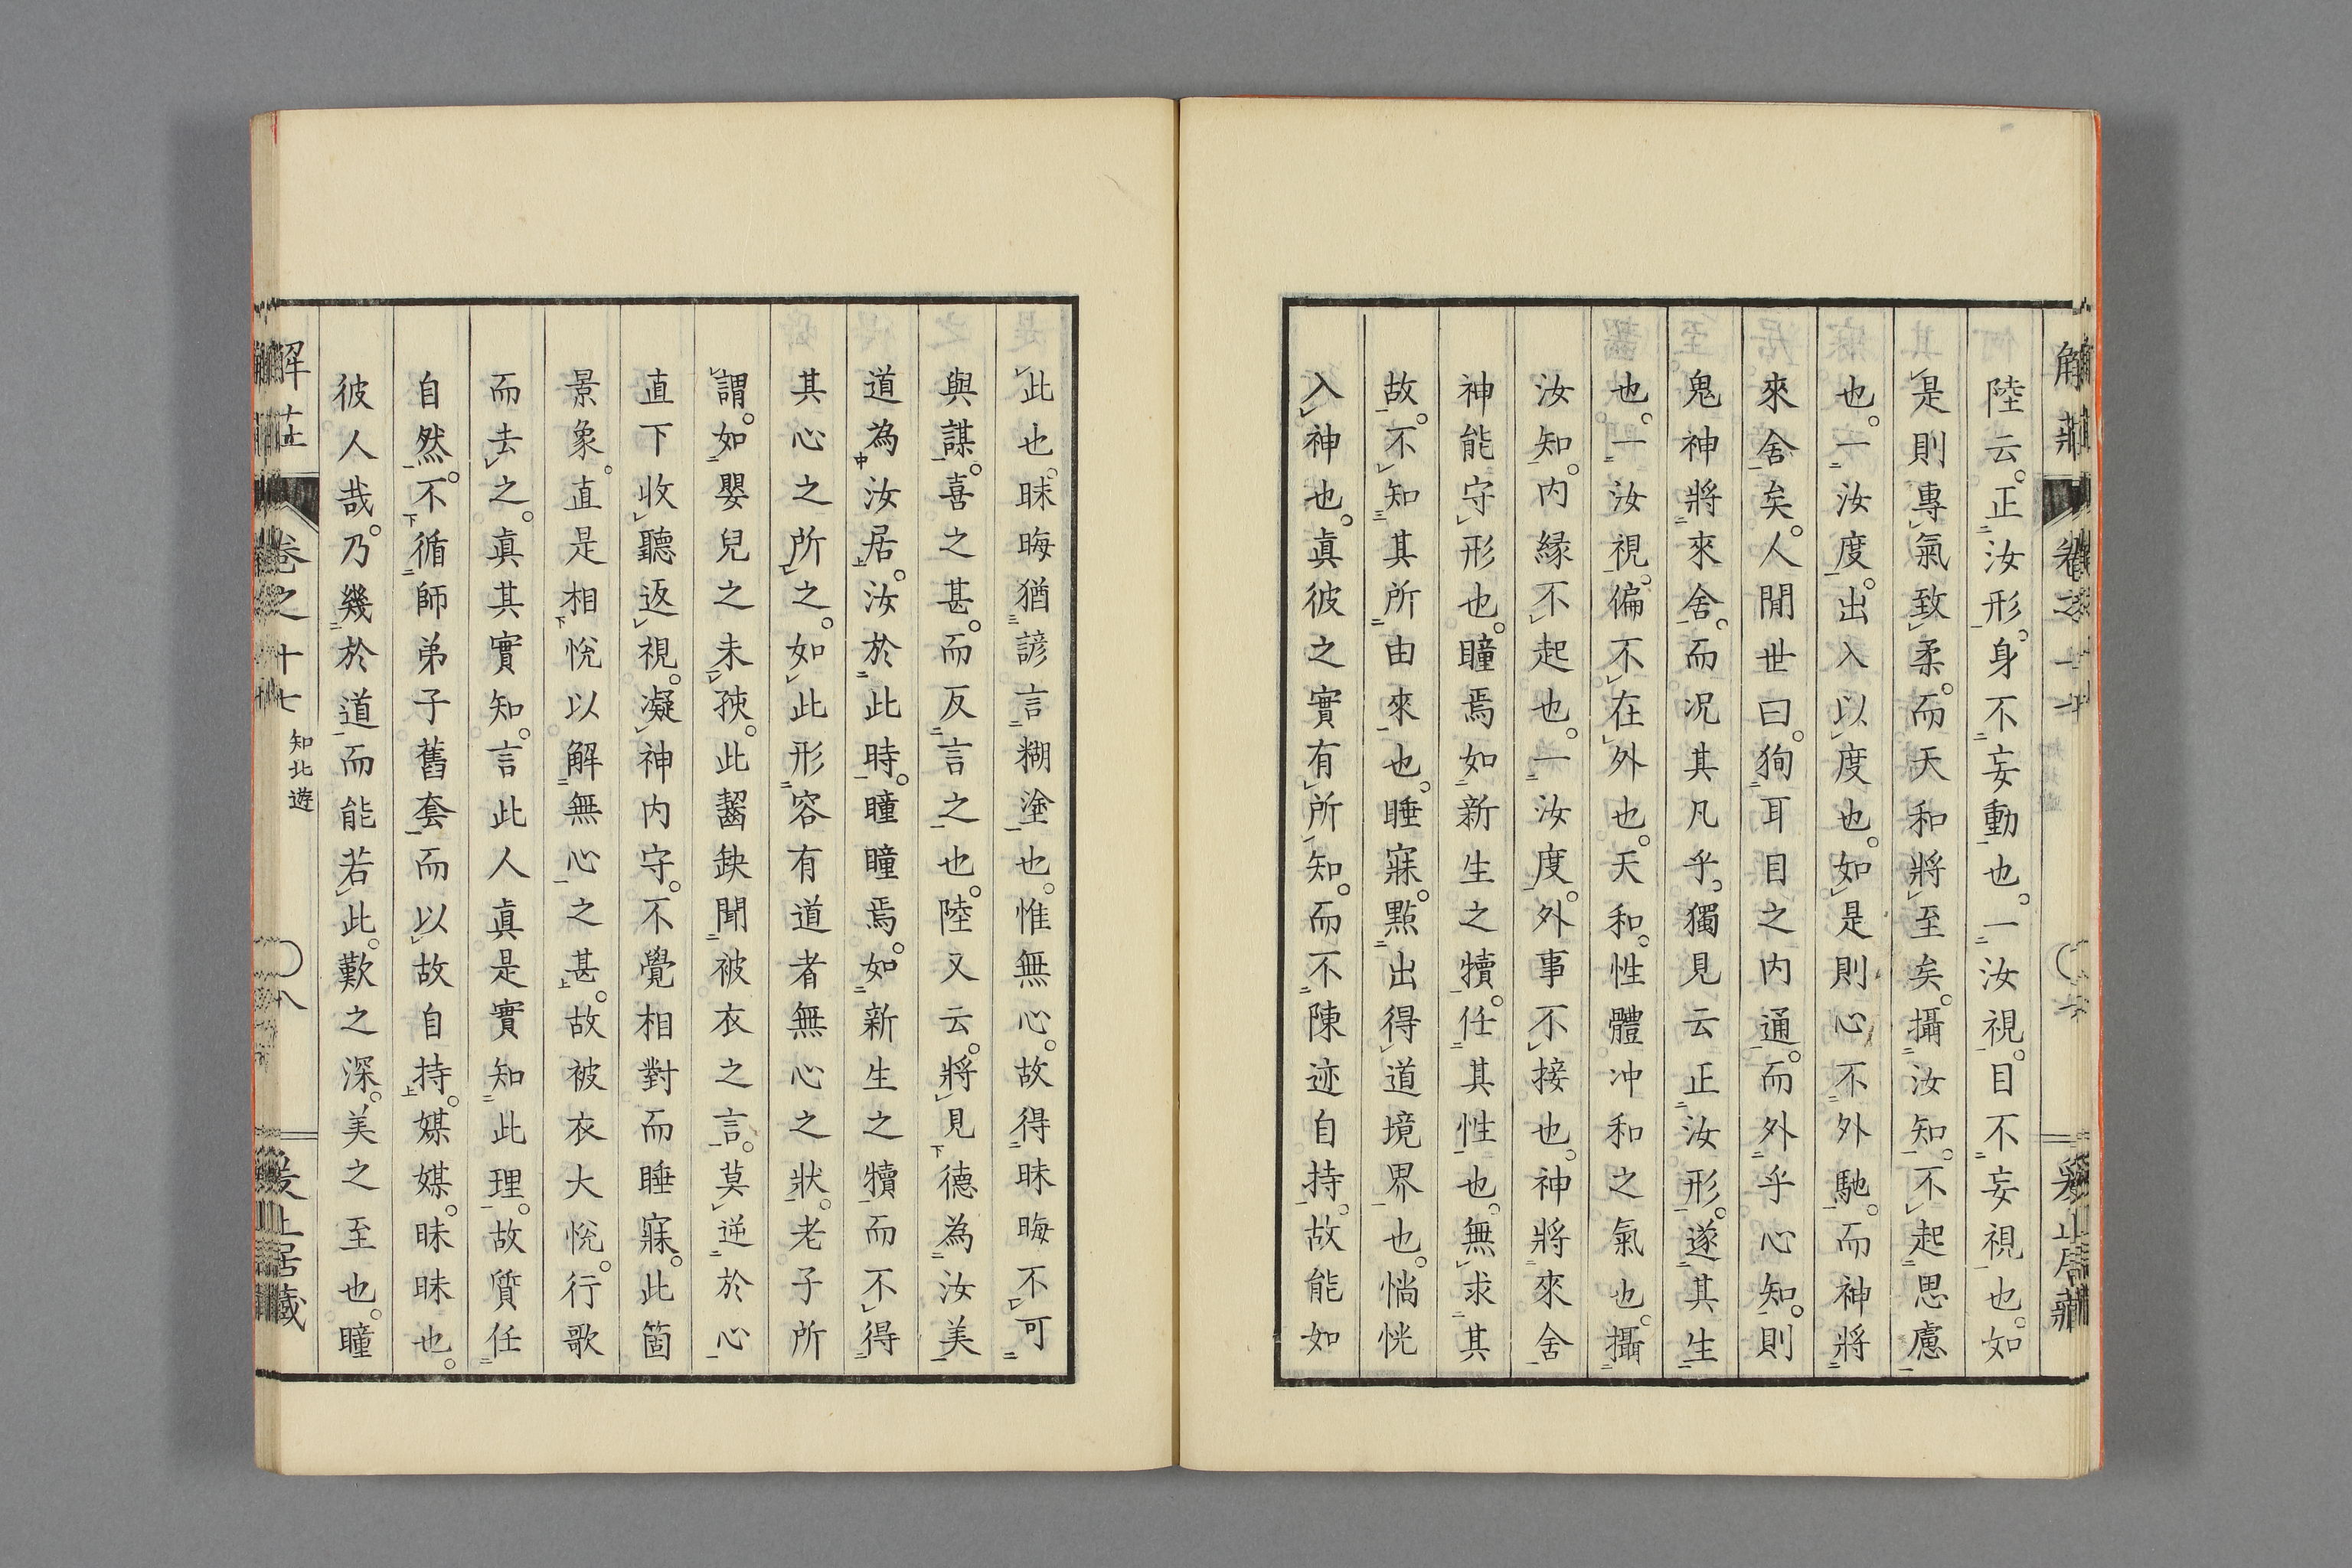 陸云。正汝形。身不妄動也。一汝視。目不妄視也。如
是則專氣致柔。而天和將至矣。攝汝知。不起思慮
也。一汝度。出入以度也。如是則心不外馳。而神將
來舍矣。人閒世曰。狥耳目之内通。而外乎心知。則
鬼神將來舍。而况其凡乎。獨見云正汝形。遂其生
也。一汝視。偏不在外也。天和。性體冲和之氣也。攝
汝知。内緣不起也。一汝度。外事不接也。神將來舍
神能守形也。瞳焉如新生之犢。任其性也。無求其
故。不知其所由來也。睡寐。㸃出得道境界也。惝恍
入神也。眞彼之實有所知。而不陳迹自持。故能如
此也。昧晦猶諺言糊塗也。惟無心。故得昧晦不可
與謀。喜之甚。而反言之也。陸又云。將見德為汝美
道為汝居。汝於此時。瞳瞳焉。如新生之犢而不得
其心之所之。如此形容有道者無心之狀。老子所
謂。如嬰兒之未孩。此齧缺聞被衣之言。莫逆於心
直下收聽返視。凝神内守。不覺相對而睡寐。此箇
景象。直是相悅以解無心之甚。故被衣大悅。行歌
而去之。眞其實知。言此人眞是實知此理。故質任
自然。不循師弟子舊套而以故自持。媒媒。昧昧也。
彼人哉。乃幾於道而能若此。歎之深。美之至也。瞳
解莊
卷之十七
知北遊
八